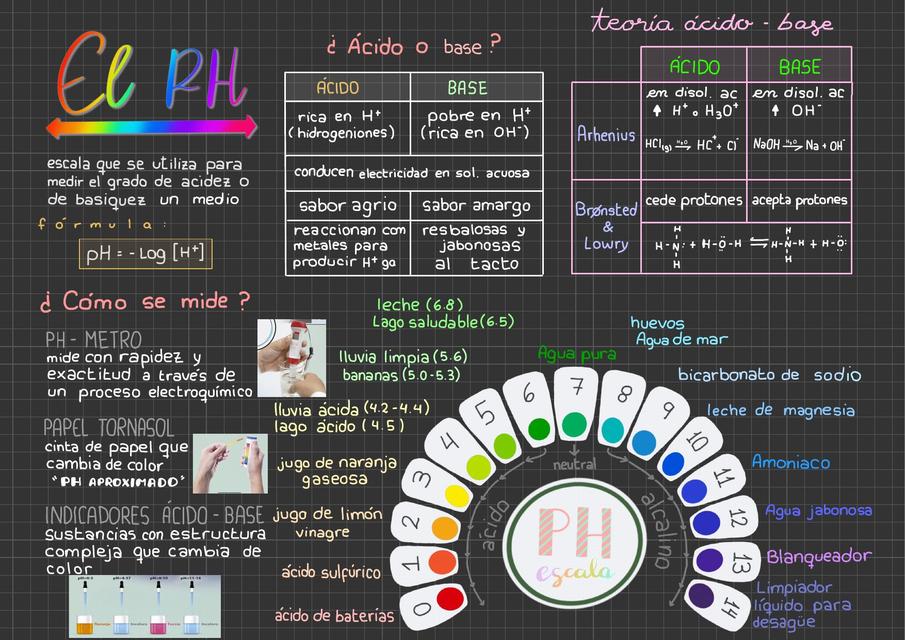 El PH
escala que se utiliza para
medir el grado de acidez o
de basiquez un medio
fórmula:
pH = - Log [H⁺]
¿ Ácido o base ?
ÁCIDO BASE
rica en H⁺ pobre en H⁺
(hidrogeniones) (rica en OH⁻)
conducen electricidad en sol. acuosa
sabor agrio sabor amargo
reaccionan con resbalosas y
metales para jabonosas
producir H⁺ga al tacto
teoría ácido - base
ÁCIDO BASE
Arhenius
en disol. ac en disol. ac
↑ H⁺ o H₃O⁺ ↑ OH⁻
HCl(g) →H₂O HC⁺ + Cl⁻ NaOH →H₂O Na + OH⁻
Brønsted
&
Lowry
cede protones acepta protones
H H
H-N: + H-O-H ⇌ H-N-H + H-O:
H H
¿ Cómo se mide ?
PH - METRO
mide con rapidez y
exactitud a través de
un proceso electroquímico
PAPEL TORNASOL
cinta de papel que
cambia de color
"PH APROXIMADO"
INDICADORES ÁCIDO - BASE
sustancias con estructura
compleja que cambia de
color
leche (6.8)
Lago saludable (6.5)
lluvia limpia (5.6)
bananas (5.0 - 5.3)
lluvia ácida (4.2 - 4.4)
lago ácido (4.5)
jugo de naranja
gaseosa
jugo de limón
vinagre
ácido sulfúrico
ácido de baterías
Agua pura
huevos
Agua de mar
bicarbonato de sodio
leche de magnesia
Amoniaco
Agua jabonosa
Blanqueador
Limpiador
líquido para
desagüe
0
1
2
3
4
5
6
7
8
9
10
11
12
13
14
ácido
neutral
alcalino
PH
escala